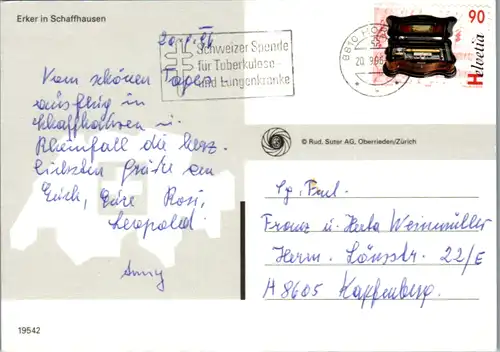 Erker in Schaffhausen
Schweizer Spende
für Tuberkulose-
und Lungenkranke
8810 HO
20.9.96
90
Helvetia
Vom schönen Tages
ausflug in
Schaffhausen u.
Rheinfall die herz
lichsten Grüße an
Euch, Eure Rosi,
Leopold.
Anny
© Rud. Suter AG, Oberrieden/Zürich
Fam.
Franz u. Herta Weinmüller
Herm. Lönsstr. 22/E
A 8605 Kapfenberg.
19542